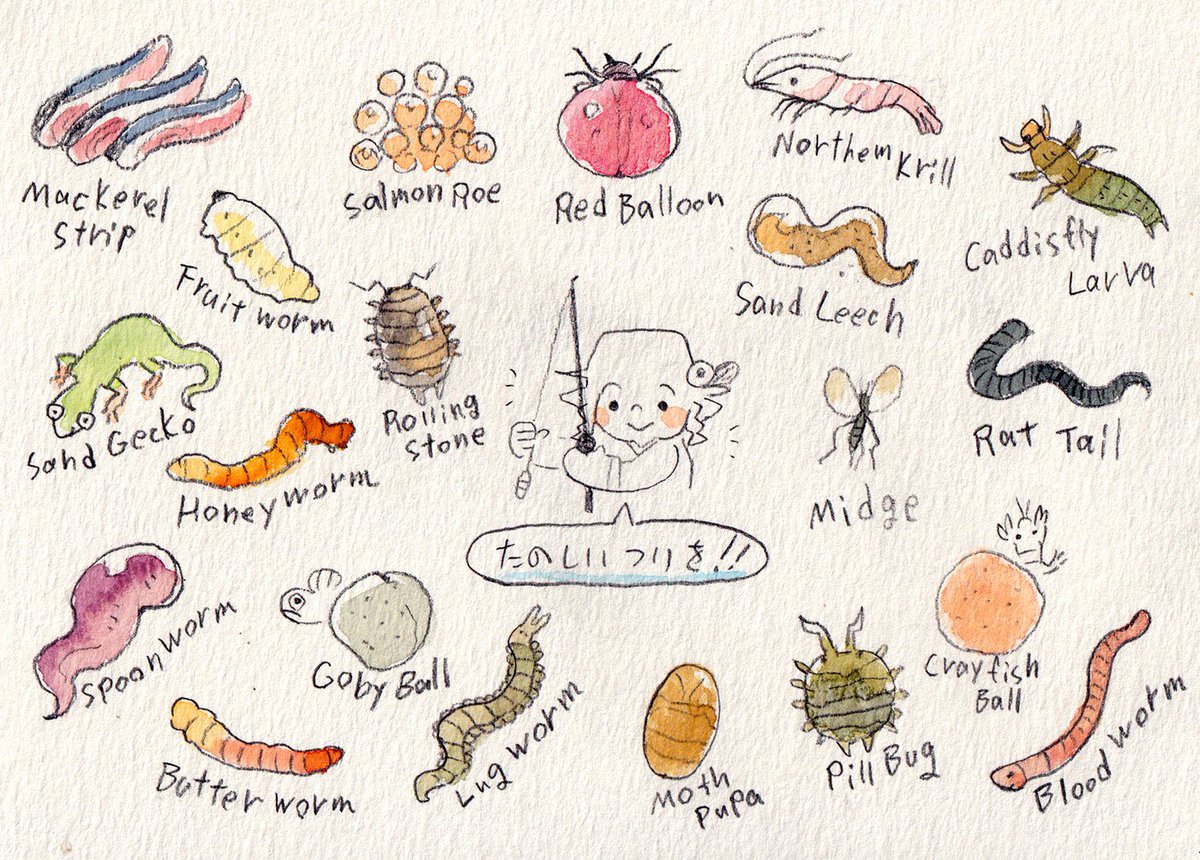 Mackerel
Strip
Salmon Roe
Red Balloon
Northern Krill
Caddisfly
Larva
Fruit worm
Sand Leech
Sand Gecko
Rolling
Stone
Rat Tail
Honey worm
Midge
たのしいつりを!!
Spoon worm
Goby Ball
Crayfish
Ball
Butter worm
Lug worm
Moth
Pupa
Pill Bug
Blood worm